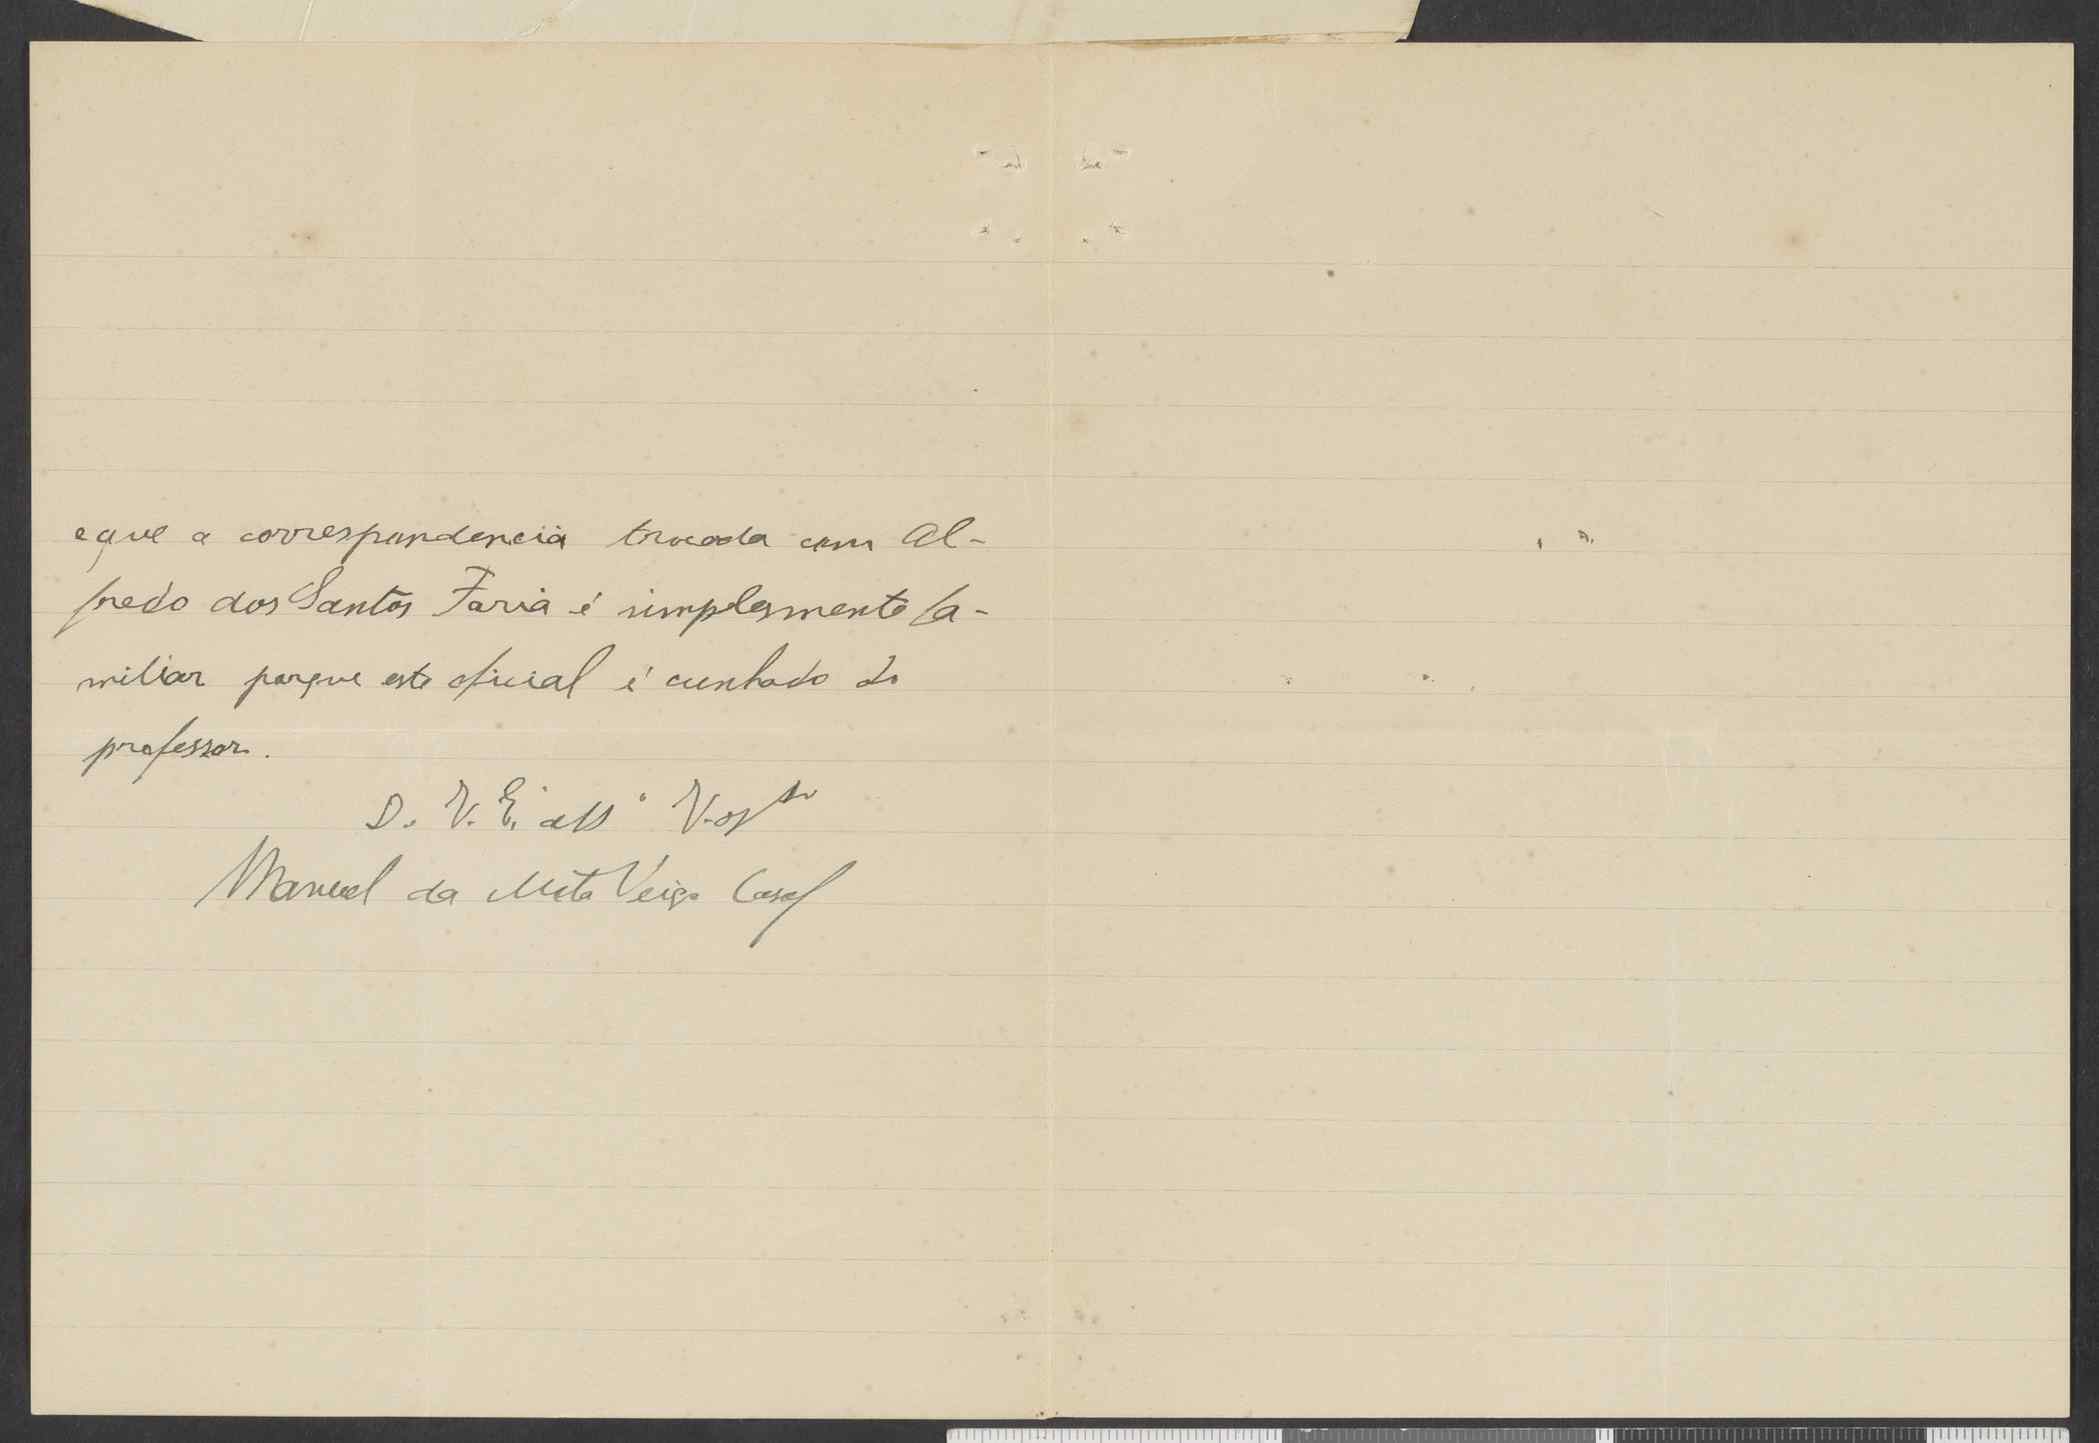 e que a correspondencia trocada com Al-
fredo dos Santos Faria é simplesmente fa-
miliar porque este oficial é cunhado do
professor.
D. V. Ex.ª att.º V.or
Manuel da Mota Veiga Casal